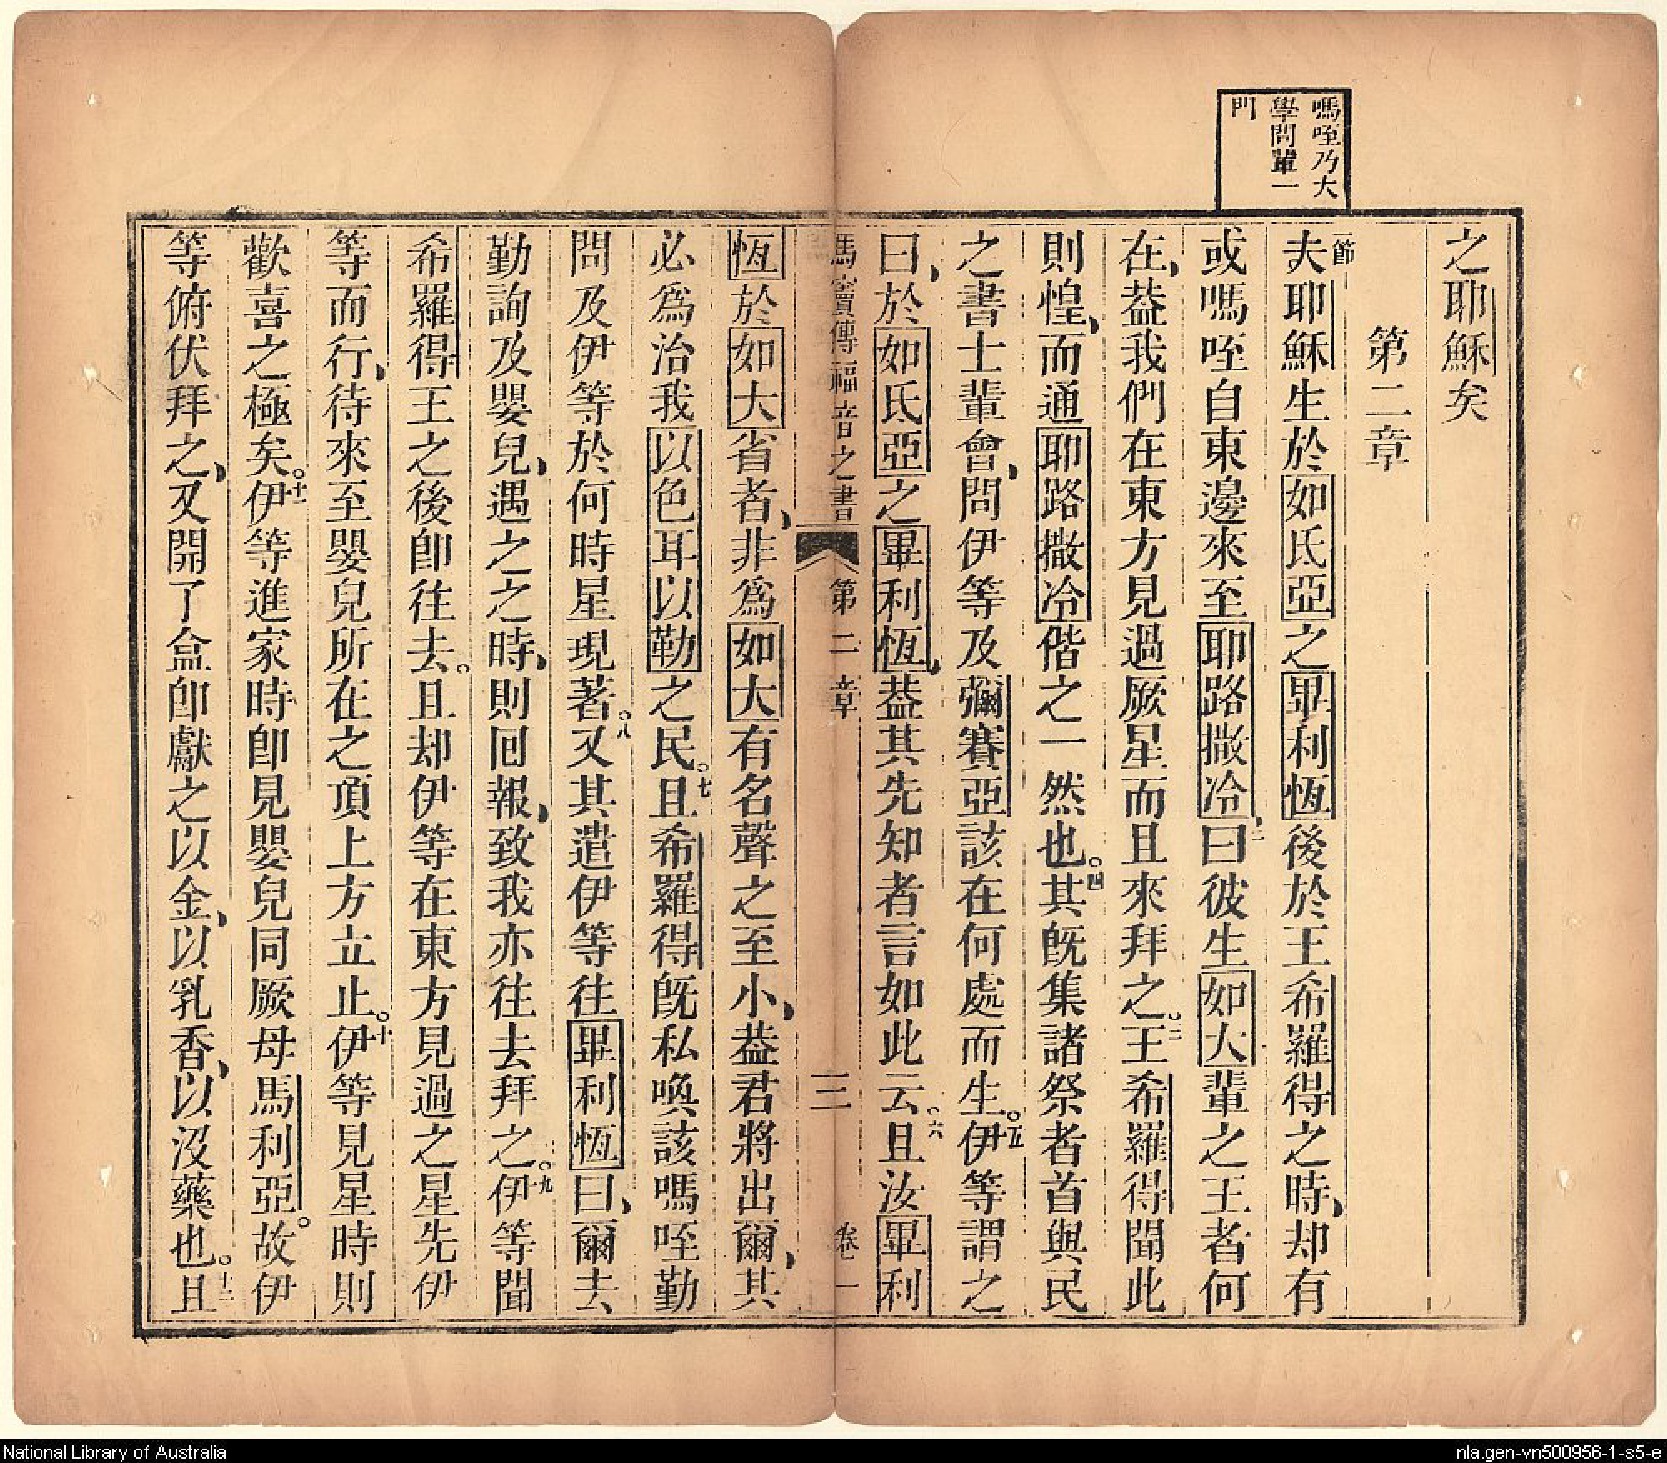 嗎咥乃大
學問輩一
門
之耶穌矣
第二章
一節
夫耶穌生於如氐亞之畢利恆後於王希羅得之時、却有
或嗎咥自東邊來至耶路撒冷、二曰彼生如大輩之王者何
在、葢我們在東方見過厥星而且來拜之。三王希羅得聞此
則惶、而通耶路撒冷偕之一然也。四其旣集諸祭者首與民
之書士輩會、問伊等及彌賽亞該在何處而生。五伊等謂之
曰、於如氐亞之畢利恆、葢其先知者言如此云。六且汝畢利
馬竇傳福音之書 第二章 三 卷一
恆於如大省者、非為如大有名聲之至小、葢君將出爾、其
必為治我以色耳以勒之民。七且希羅得旣私喚該嗎咥勤
問及伊等於何時星現著。八又其遣伊等往畢利恆曰、爾去
勤詢及嬰兒、遇之之時、則囘報、致我亦往去拜之。九伊等聞
希羅得王之後卽往去。且却伊等在東方見過之星先伊
等而行、待來至嬰兒所在之頂上方立止。十伊等見星時則
歡喜之極矣。十一伊等進家時卽見嬰兒同厥母馬利亞。故伊
等俯伏拜之、又開了盒卽獻之以金、以乳香、以沒藥也。十二且
National Library of Australia
nla.gen-vn500956-1-s5-e